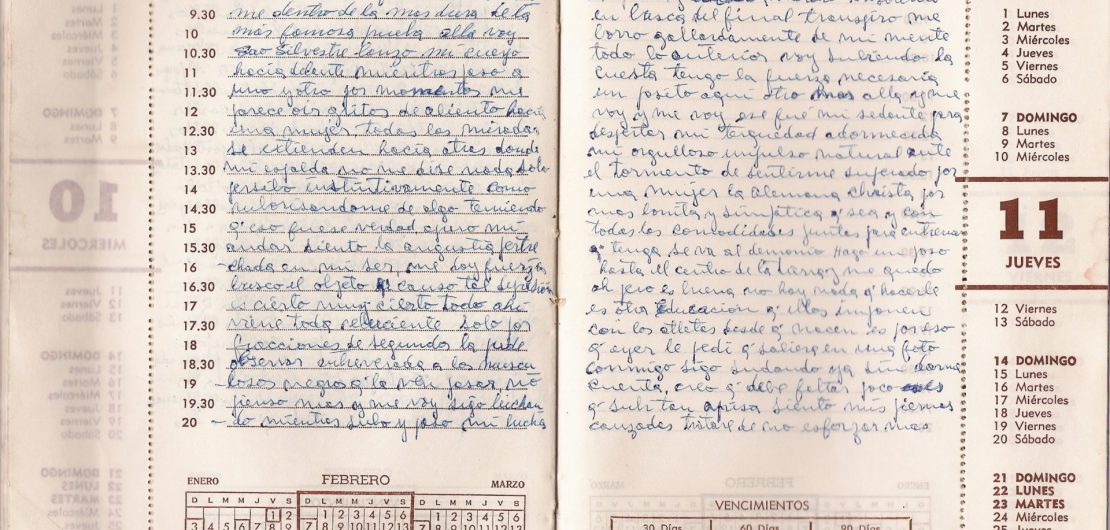 9.30 me dentro de la mas dura de la
10 mas famosa prueba alla voy
10.30 Sao Silvestre lanzo mi cuerpo
11 hacia delante mientras paso a
11.30 uno y otro por momentos me
12 parece oir gritos de aliento hacia
12.30 una mujer todas las miradas
13 se extienden hacia atras donde
13.30 mi espalda no me dise nada solo
14 persito instintivamente como
14.30 ruborisandome de algo temiendo
15 q' eso fuese verdad apuro mi
15.30 andar siento la angustia pertre
16 - chada en mi ser, me doy fuerzas
16.30 busco el objeto q' causo tal
17 es cierto muy cierto todo ahi
17.30 viene toda reluciente solo por
18 fracciones de segundos la pude
18.30 observar a los
19 - losos negros q' la ven pasar, no
19.30 pienso mas y me voy sigo luchan
20 - do mientras subo y paso mi lucha
ENERO FEBRERO MARZO
D L M M J V S D L M M J V S D L M M J V S
1 2 1 2 3 4 5 6 1 2 3 4 5 6
3 4 5 6 7 8 9 7 8 9 10 11 12 13 7 8 9 10 11 12 13
en busca del final transpiro me
borro gallardamente de mi mente
todo lo anterior voy subiendo la
cuesta tengo la fuerza necesaria
un pasito aqui otro mas alla y me
voy y me voy ese fue mi sedante para
despertar mi terquedad adormecida
mi orgulloso impulso natural ante
el tormento de sentirme superado por
una mujer la Alemana Christa por
mas bonita y simpática q' sea y con
todas las comodidades juntas para entrenar
q' tenga se va al demonio Hago un paso
hasta el centro de la larga y me quedo
ah pero es buena no hay nada q' hacerle
es otra Educacion q' ellos imponen
con los atletas desde q' nacen es por eso
q' ayer le pedi q' saliera en una foto
conmigo sigo sudando ya sin darme
cuenta, creo q' debe faltar poco
q' subi tan aprisa siento mis piernas
canzadas tratare de no esforzar mas
VENCIMIENTOS
30 Días 60 Días 90 Días
1 Lunes
2 Martes
3 Miércoles
4 Jueves
5 Viernes
6 Sábado
7 DOMINGO
8 Lunes
9 Martes
10 Miércoles
11
JUEVES
12 Viernes
13 Sábado
14 DOMINGO
15 Lunes
16 Martes
17 Miércoles
18 Jueves
19 Viernes
20 Sábado
21 DOMINGO
22 LUNES
23 MARTES
24 Miércoles
25 Jueves